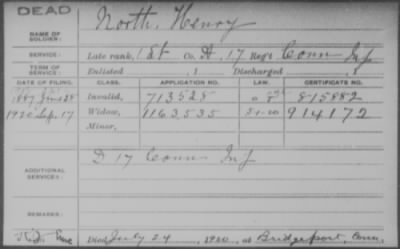 DEAD
NAME OF SOLDIER: North, Henry
SERVICE: Late rank, 1 Lt Co. D, 17 Reg't Conn Inf
TERM OF SERVICE: Enlisted , 1 Discharged , 1
DATE OF FILING. CLASS. APPLICATION NO. LAW. CERTIFICATE NO.
Invalid, 713528 815882
1920 Sep. 17 Widow, 1163535 914172
Minor,
ADDITIONAL SERVICES: D 17 Conn Inf
REMARKS:
Died July 24, 1920, at Bridgeport Conn.